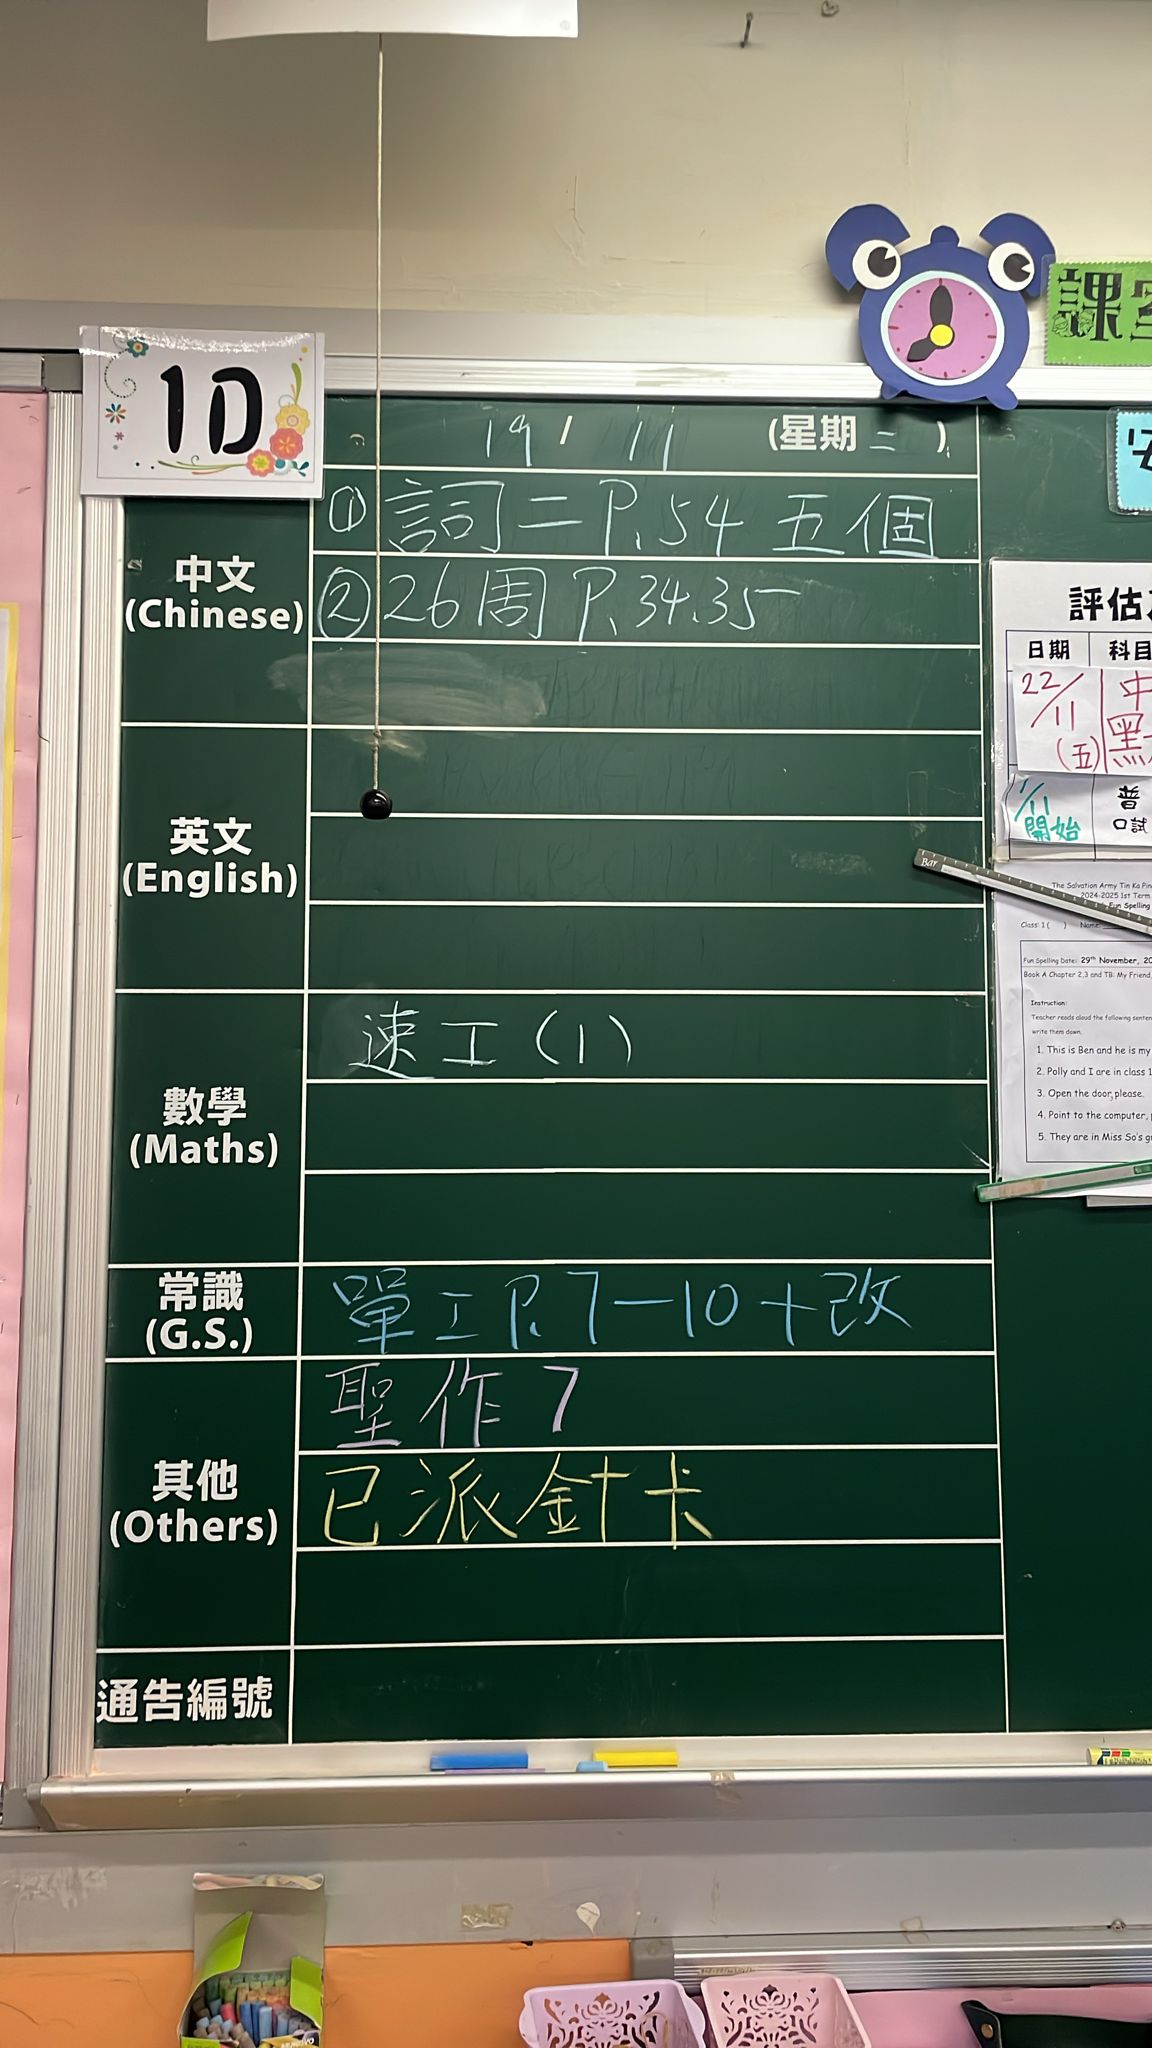 課室
1D
19 / 11 (星期二)
中文
(Chinese)
① 詞二 P.54 五個
② 26周 P.34.35
英文
(English)
數學
(Maths)
速工(1)
常識
(G.S.)
單工 P.7-10+改
其他
(Others)
聖作7
已派針卡
通告編號
評估
日期 科目
22/11 (五) 中
1/11 開始 普
口試
Bar
The Salvation Army Tin Ka Pin
2024-2025 1st Term
Fun Spelling
Class: 1 ( ) Name:
Fun Spelling Date: 29th November, 20
Book A Chapter 2,3 and TB: My Friend,
Instruction:
Teacher reads aloud the following senten
write them down.
1. This is Ben and he is my
2. Polly and I are in class 1
3. Open the door, please.
4. Point to the computer,
5. They are in Miss So's g